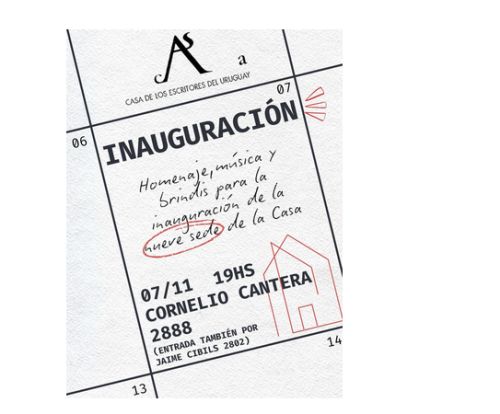 cAsa
CASA DE LOS ESCRITORES DEL URUGUAY
07
06
INAUGURACIÓN
Homenaje, música y
brindis para la
inauguración de la
nueve sede de la Casa
07/11 19HS
CORNELIO CANTERA
2888
(ENTRADA TAMBIÉN POR
JAIME CIBILS 2802)
14
13